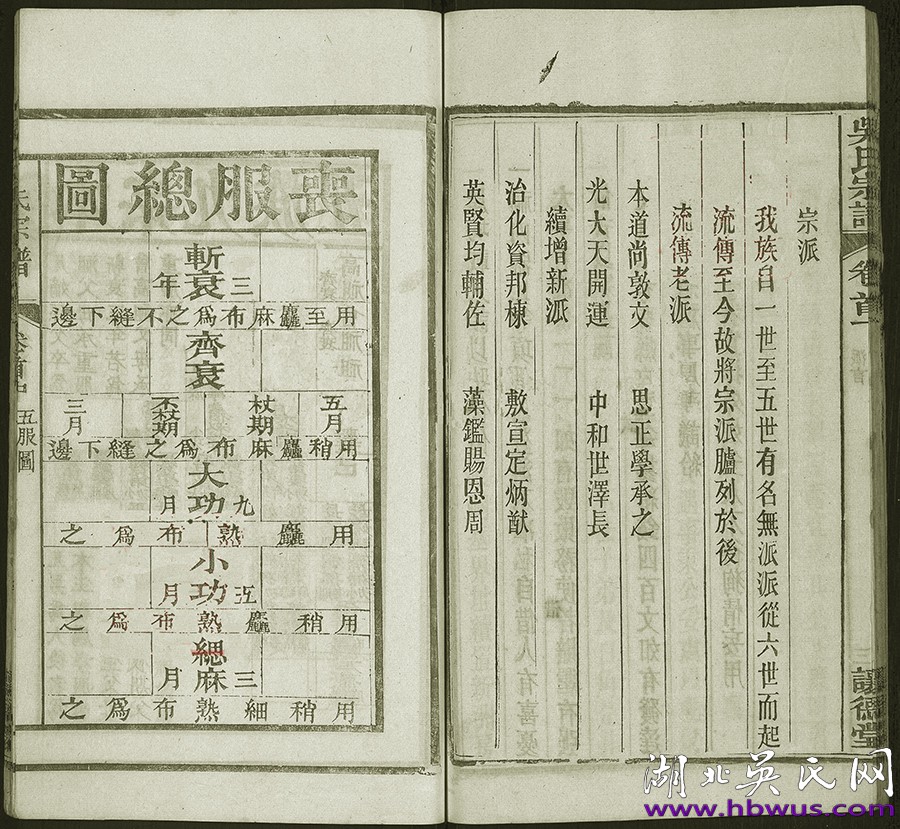 吳氏宗譜 卷首 三 讓德堂
宗派
我族自一世至五世有名無派派從六世而起
流傳至今故將宗派臚列於後
流傳老派
本道尚敦文 思正學承之
光大天開運 中和世澤長
續增新派
治化資邦棟 敷宣定炳猷
英賢均輔佐 藻鑑賜恩周
喪服總圖
斬衰 三年
用至麤麻布爲之不縫下邊
齊衰
五月 杖期 不杖期 三月
用稍麤麻布爲之縫下邊
大功 九月
用麤熟布爲之
小功 五月
用稍麤熟布爲之
緦麻 三月
用稍細熟布爲之
氏宗譜 卷首 五服圖
湖北吳氏网
www.hbwus.com